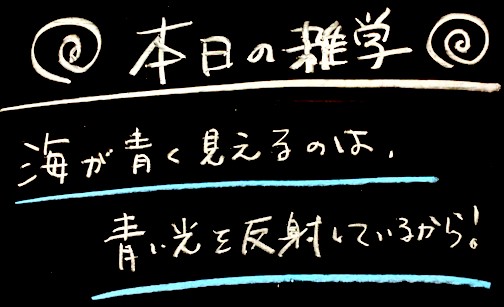 本日の雑学
海が青く見えるのは、
青い光を反射しているから!